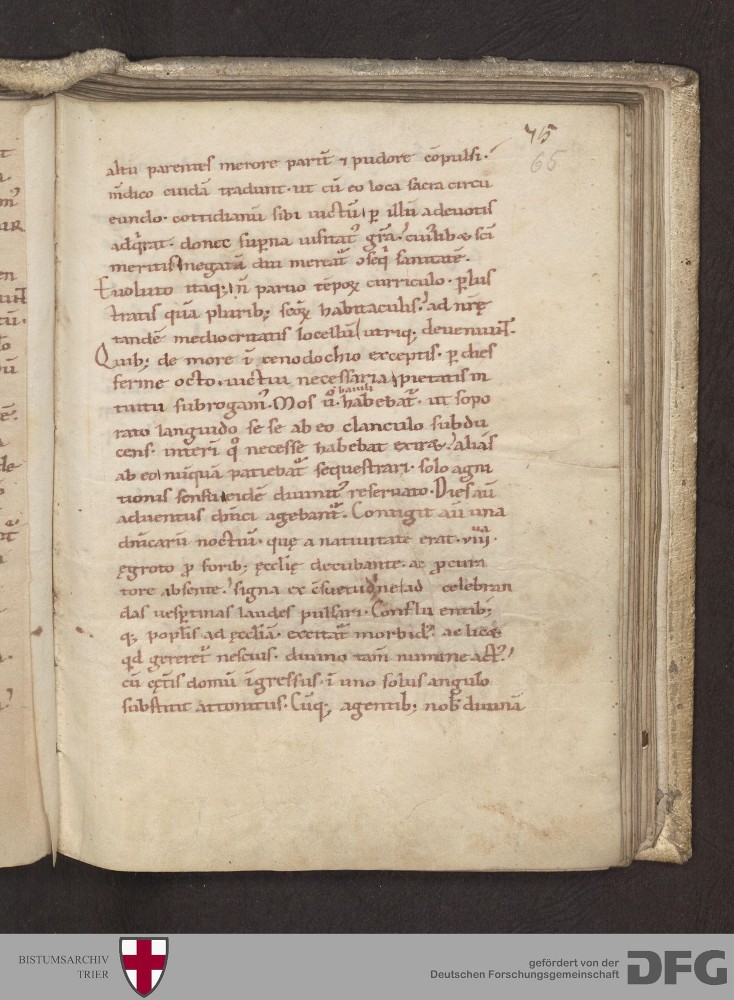 75
65
altū parentes merore partī ⁊ pudore cōpulsi.
m̄dico cuidā tradunt. ut cū eo loca sacra circū
eundo. cottidianū sibi uictū ꝑ illū a deuotis
adq̄rat. donec suꝑna uisitatꝰ gr̄a. ciuilibꝫ sc̄i
meritis negatā diu mereat̄ oseq̄ sanitatē.
Euoluto itaqꝫ n̄ paruo tēpoꝝ curriculo. ꝑlus
tratis quā pluribꝫ sc̄oꝝ habitaculis. ad nr̄ę
tandē mediocritatis locellū utriqꝫ deueniunt.
Quibꝫ de more ī cenodochio exceptis. ꝑ dies
ferme octo uictui necessaria pietatis in
tuitu subrogam̄. Mos ū habebat̄. ut sopo
rato languido se se ab eo clanculo subdu
cens. interī qō necesse habebat exīret. alias
ab eo nūquā patiebat̄ sequestrari. solo agni
tionis sensu eidē diuinitꝰ reseruato. Dies aū
aduentus dn̄ici agebant̄. Contigit aū una
dn̄icarū noctiū. quę a natiuitate erat .viiii.
ęgroto ꝓ foribꝫ ęcclię decubante. ac ꝓcura
tore absente. signa ex c̄suetudine ad celebran
das uesꝑtinas laudes pulsari. Conflu entibꝫ
qꝫ popl̄is ad ęccl̄iā. excitat̄ morbidꝰ. ac licet
qd̄ gereret̄ nescius. diuino tam̄ numine actꝰ.
cū cęt̄is domū īgressus. ī uno solus angulo
substitit attonitus. Cūqꝫ agentibꝫ nob̄ diuinā
BISTUMSARCHIV
TRIER
gefördert von der
Deutschen Forschungsgemeinschaft
DFG